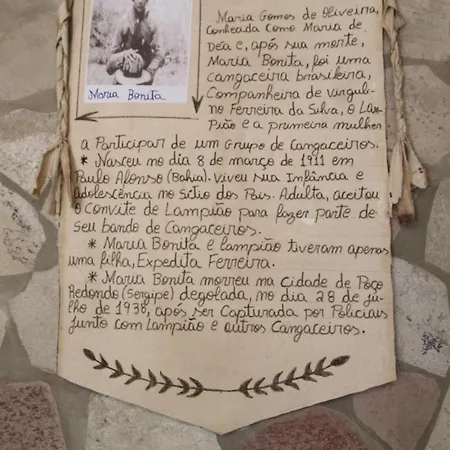 Maria Bonita
Maria Gomes de Oliveira,
conhecida como Maria de
Déa e, após sua morte,
Maria Bonita, foi uma
cangaceira brasileira,
companheira de Virguli-
no Ferreira da Silva, o Lam-
pião e a primeira mulher
a Participar de um Grupo de Cangaceiros.
* Nasceu no dia 8 de março de 1911 em
Paulo Afonso (Bahia). Viveu sua Infância e
adolescência no Sítio dos Pais. Adulta, aceitou
o Convite de Lampião para fazer parte de
seu bando de Cangaceiros.
* Maria Bonita e lampião tiveram apenas
uma filha, Expedita Ferreira.
* Maria Bonita morreu na Cidade de Poço
Redondo (Sergipe) degolada, no dia 28 de ju-
lho de 1938, após ser Capturada por Policiais
junto com Lampião e outros Cangaceiros.